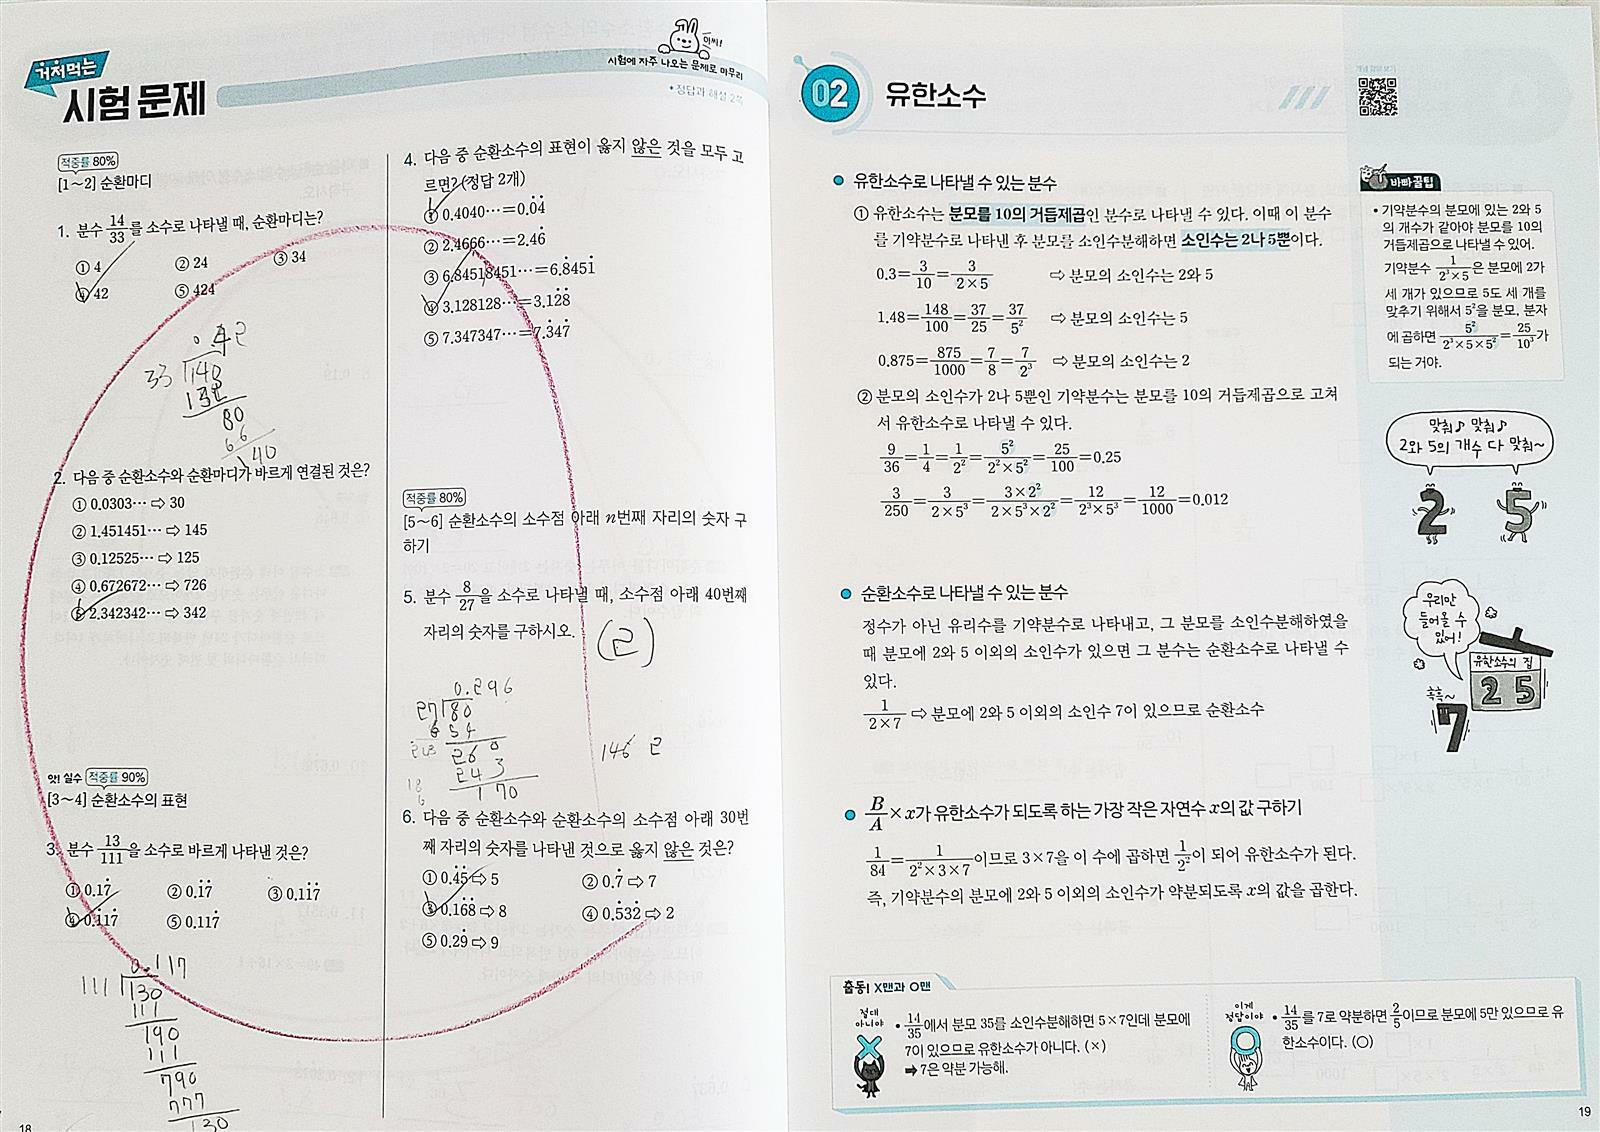 거저먹는
시험 문제
아싸!
시험에 자주 나오는 문제로 마무리
• 정답과 해설 2쪽
적중률 80%
[1~2] 순환마디
1. 분수 14/33를 소수로 나타낼 때, 순환마디는?
① 4 ② 24 ③ 34
④ 42 ⑤ 424
0.42
33 140
132
80
66
140
2. 다음 중 순환소수와 순환마디가 바르게 연결된 것은?
① 0.0303… ⇨ 30
② 1.451451… ⇨ 145
③ 0.12525… ⇨ 125
④ 0.672672… ⇨ 726
⑤ 2.342342… ⇨ 342
앗! 실수 적중률 90%
[3~4] 순환소수의 표현
3. 분수 13/111을 소수로 바르게 나타낸 것은?
① 0.17̇ ② 0.1̇7̇ ③ 0.11̇7̇
④ 0.1̇17̇ ⑤ 0.117̇
0.117
111 130
111
190
111
790
777
130
18
4. 다음 중 순환소수의 표현이 옳지 않은 것을 모두 고
르면? (정답 2개)
① 0.4040…=0.0̇4̇
② 2.4666…=2.46̇
③ 6.84518451…=6.8̇451̇
④ 3.128128…=3.12̇8̇
⑤ 7.347347…=7.3̇47̇
적중률 80%
[5~6] 순환소수의 소수점 아래 n번째 자리의 숫자 구
하기
5. 분수 8/27을 소수로 나타낼 때, 소수점 아래 40번째
자리의 숫자를 구하시오.
(2)
0.296
27 80
54
260
243
170
146 2
6. 다음 중 순환소수와 순환소수의 소수점 아래 30번
째 자리의 숫자를 나타낸 것으로 옳지 않은 것은?
① 0.4̇5̇ ⇨ 5 ② 0.7̇ ⇨ 7
③ 0.16̇8̇ ⇨ 8 ④ 0.5̇32̇ ⇨ 2
⑤ 0.29̇ ⇨ 9
02 유한소수
유한소수로 나타낼 수 있는 분수
① 유한소수는 분모를 10의 거듭제곱인 분수로 나타낼 수 있다. 이때 이 분수
를 기약분수로 나타낸 후 분모를 소인수분해하면 소인수는 2나 5뿐이다.
0.3=3/10=3/(2×5) ⇨ 분모의 소인수는 2와 5
1.48=148/100=37/25=37/5² ⇨ 분모의 소인수는 5
0.875=875/1000=7/8=7/2³ ⇨ 분모의 소인수는 2
② 분모의 소인수가 2나 5뿐인 기약분수는 분모를 10의 거듭제곱으로 고쳐
서 유한소수로 나타낼 수 있다.
9/36=1/4=1/2²=5²/(2²×5²)=25/100=0.25
3/250=3/(2×5³)=(3×2²)/(2×5³×2²)=12/(2³×5³)=12/1000=0.012
순환소수로 나타낼 수 있는 분수
정수가 아닌 유리수를 기약분수로 나타내고, 그 분모를 소인수분해하였을
때 분모에 2와 5 이외의 소인수가 있으면 그 분수는 순환소수로 나타낼 수
있다.
1/(2×7) ⇨ 분모에 2와 5 이외의 소인수 7이 있으므로 순환소수
B/A×x가 유한소수가 되도록 하는 가장 작은 자연수 x의 값 구하기
1/84=1/(2²×3×7)이므로 3×7을 이 수에 곱하면 1/2²이 되어 유한소수가 된다.
즉, 기약분수의 분모에 2와 5 이외의 소인수가 약분되도록 x의 값을 곱한다.
바빠꿀팁
• 기약분수의 분모에 있는 2와 5
의 개수가 같아야 분모를 10의
거듭제곱으로 나타낼 수 있어.
기약분수 1/(2³×5)은 분모에 2가
세 개가 있으므로 5도 세 개를
맞추기 위해서 5²을 분모, 분자
에 곱하면 5²/(2³×5×5²)=25/10³가
되는 거야.
맞춰♪ 맞춰♪
2와 5의 개수 다 맞춰~
2 5
우리만
들어올 수
있어!
유한소수의 집
2 5
흑흑~
7
출동! X맨과 O맨
절대
아니야
• 14/35에서 분모 35를 소인수분해하면 5×7인데 분모에
7이 있으므로 유한소수가 아니다. (×)
➡ 7은 약분 가능해.
이게
정답이야
• 14/35를 7로 약분하면 2/5이므로 분모에 5만 있으므로 유
한소수이다. (○)
19